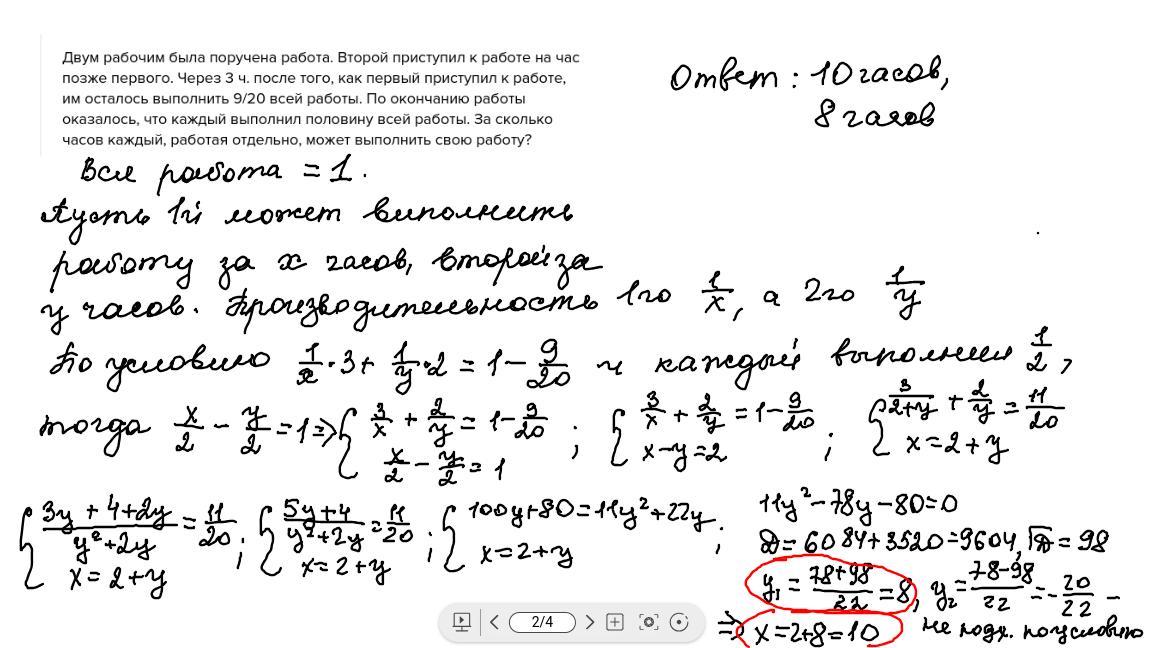 Двум рабочим была поручена работа. Второй приступил к работе на час
позже первого. Через 3 ч. после того, как первый приступил к работе,
им осталось выполнить 9/20 всей работы. По окончанию работы
оказалось, что каждый выполнил половину всей работы. За сколько
часов каждый, работая отдельно, может выполнить свою работу?
Ответ: 10 часов,
8 часов
Вся работа = 1.
Пусть 1й может выполнить
работу за x часов, второй за
y часов. Производительность 1го 1/x, а 2го 1/y
По условию 1/x · 3 + 1/y · 2 = 1 - 9/20 и каждый выполнил 1/2,
тогда x/2 - y/2 = 1 => { 3/x + 2/y = 1 - 9/20 ; x/2 - y/2 = 1 ; { 3/x + 2/y = 1 - 9/20 ; x - y = 2 ; { 3/(2+y) + 2/y = 11/20 ; x = 2 + y
{ (3y + 4 + 2y)/(y² + 2y) = 11/20 ; x = 2 + y ; { (5y + 4)/(y² + 2y) = 11/20 ; x = 2 + y ; { 100y + 80 = 11y² + 22y ; x = 2 + y ;
11y² - 78y - 80 = 0
D = 6084 + 3520 = 9604, √D = 98
y₁ = (78 + 98)/22 = 8, y₂ = (78 - 98)/22 = -20/22 -
не подх. по условию
=> x = 2 + 8 = 10
2/4